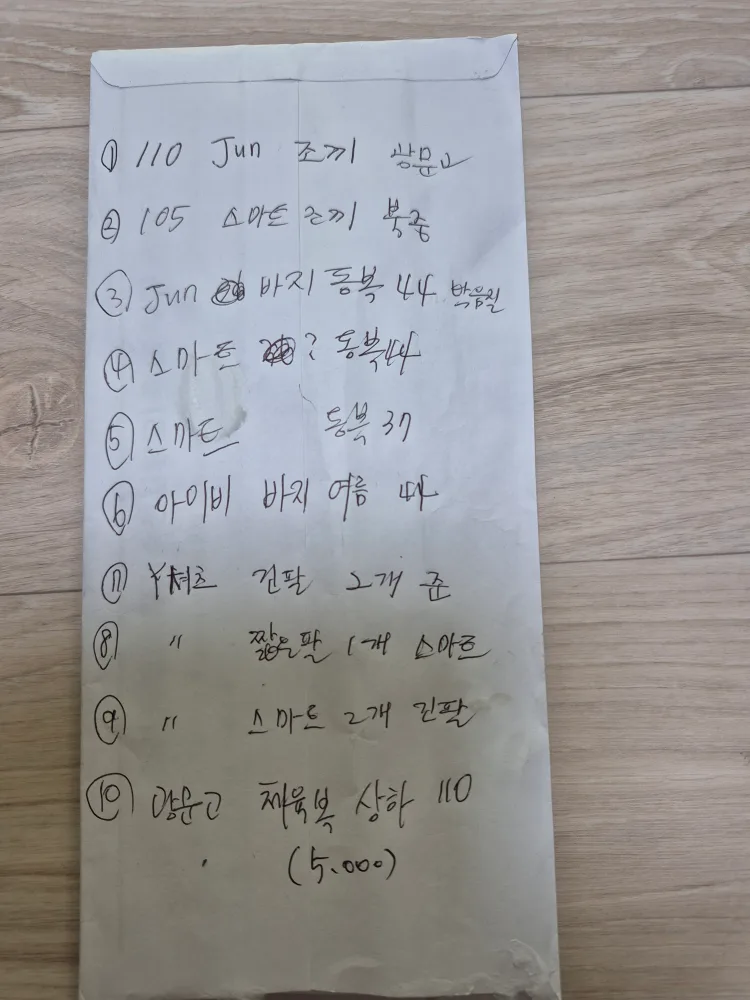 ① 110 Jun 조끼 광문고
② 105 스마트 조끼 북중
③ Jun 바지 동복 44 박음질
④ 스마트 ? 동복 44
⑤ 스마트 동복 37
⑥ 아이비 바지 여름 44
⑦ Y셔츠 긴팔 2개 준
⑧ 〃 짧은팔 1개 스마트
⑨ 〃 스마트 2개 긴팔
⑩ 광문고 체육복 상하 110
(5.000)